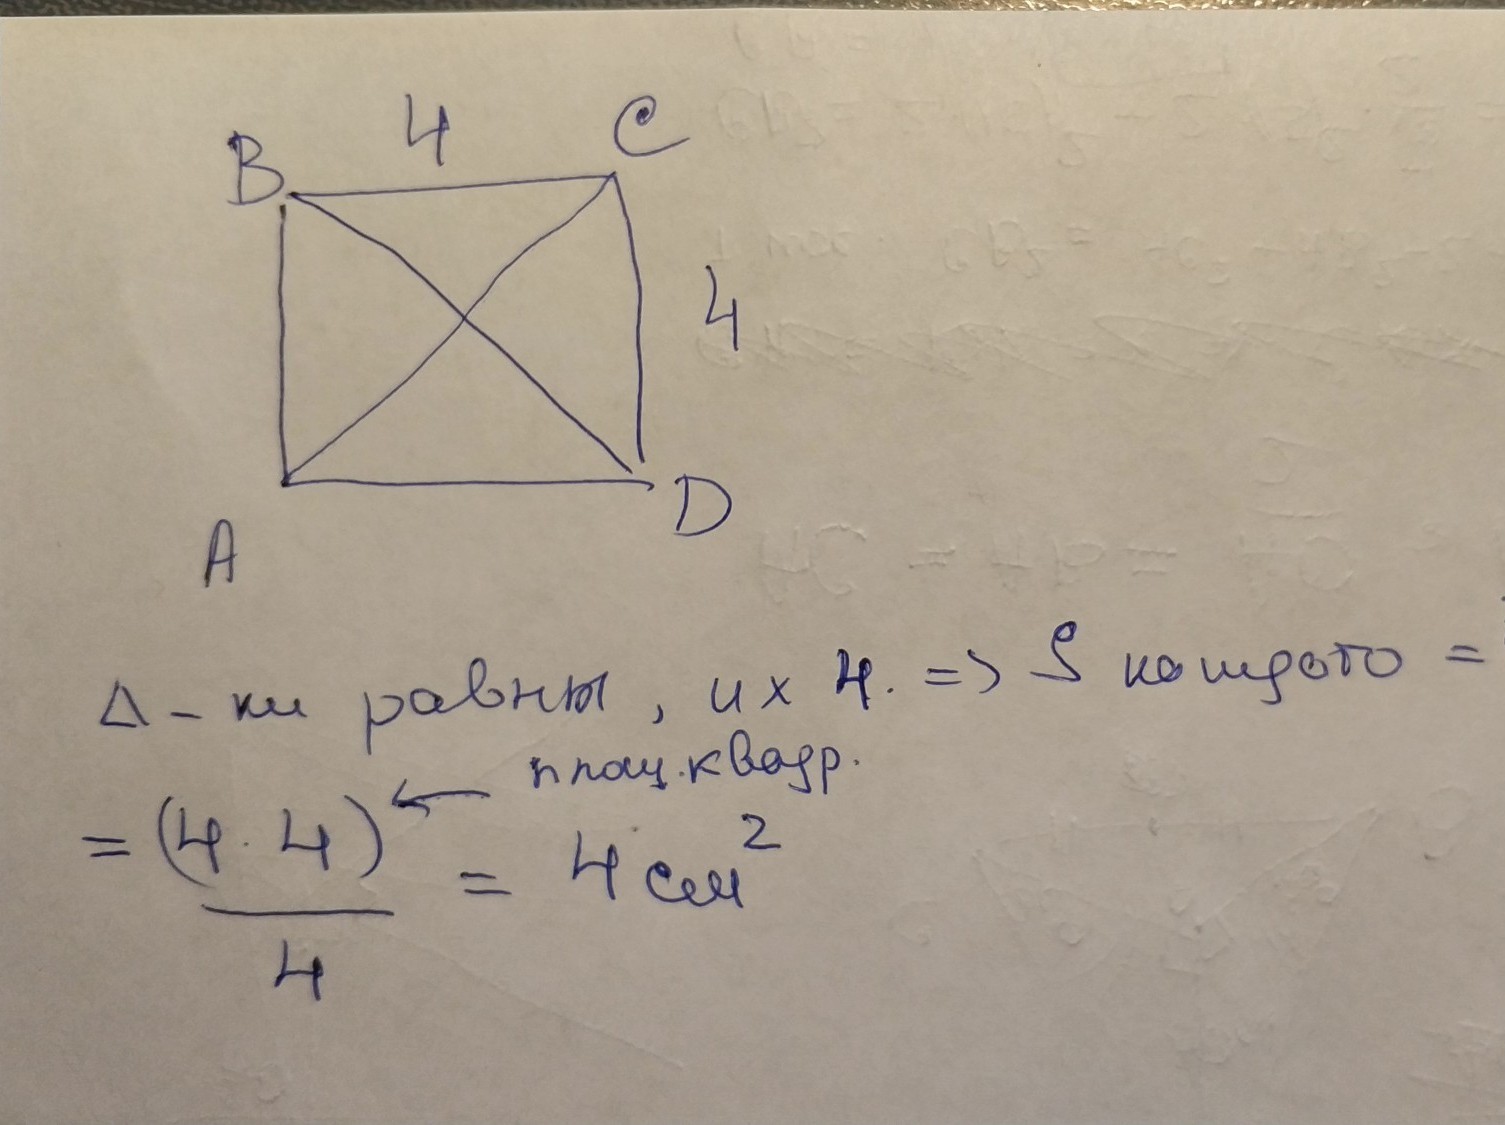 4
B
C
4
A
D
Δ-ки равны, их 4. => S каждого =
площ. квадр.
= (4 · 4)
= 4 см²
4